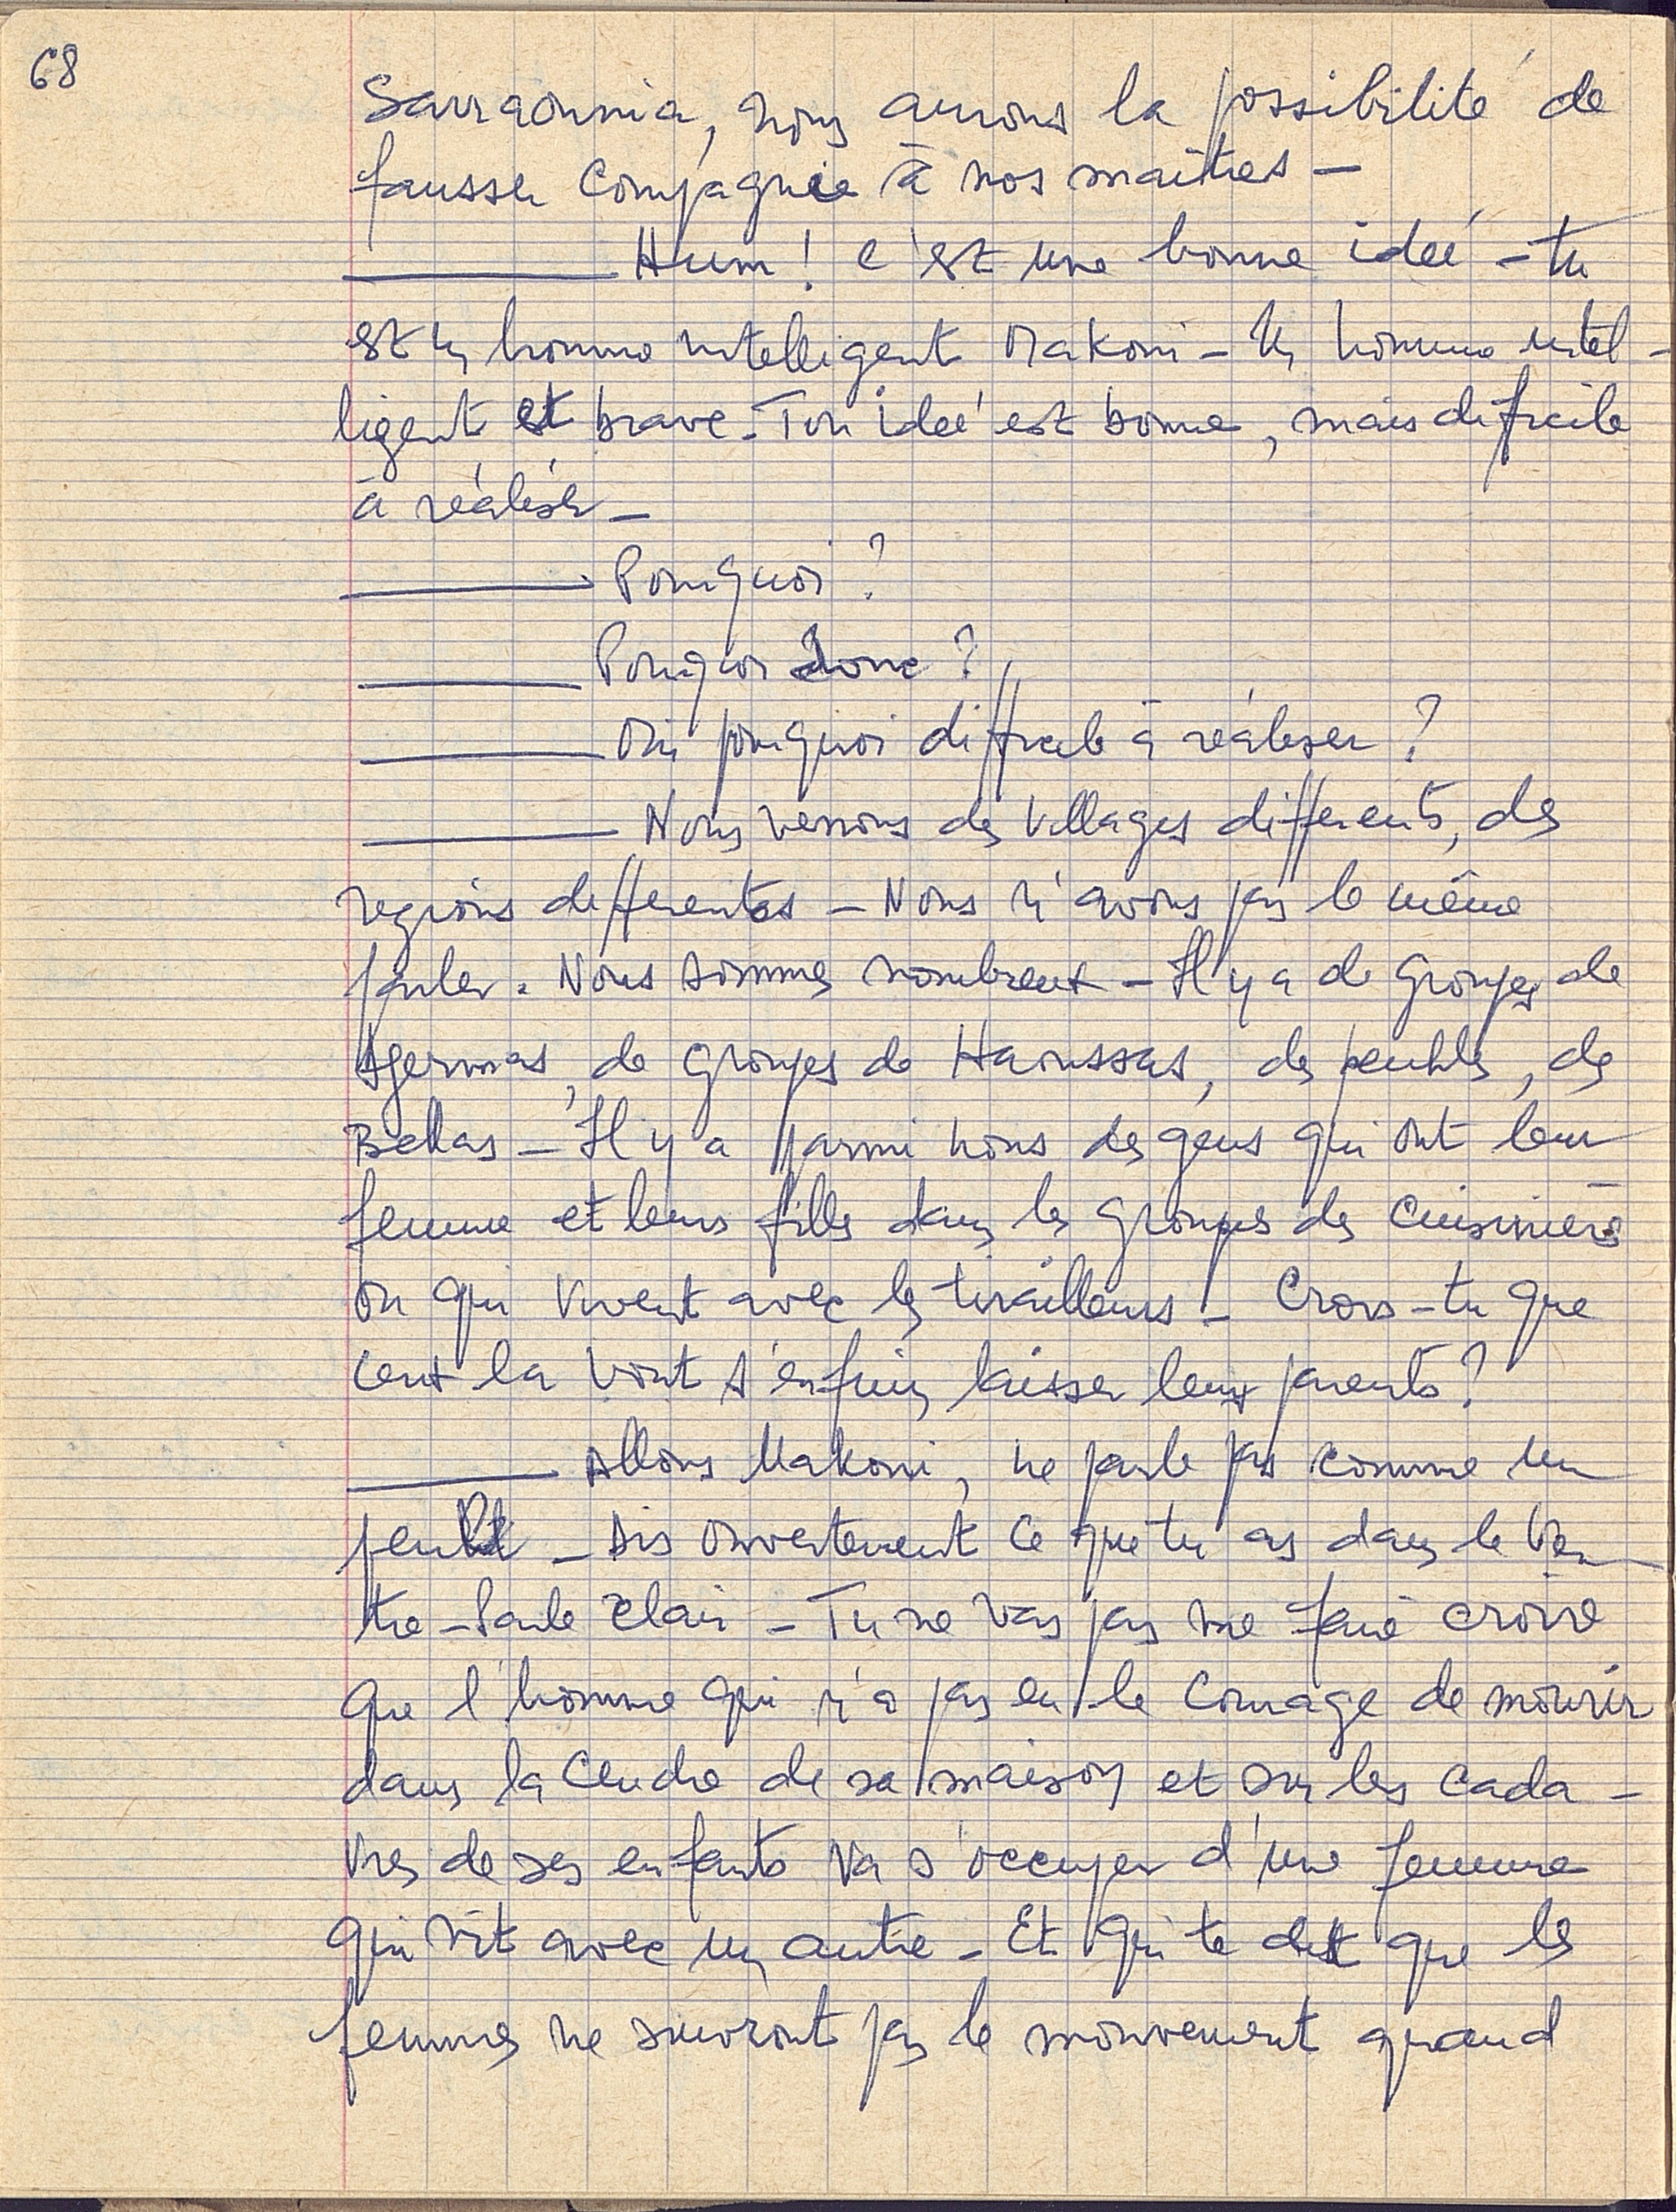 68
Sarraounia, nous aurons la possibilité de
fausser compagnie à nos maîtres —
— Hum ! c'est une bonne idée — tu
est un homme intelligent Makoni — Un homme intel-
ligent et brave — Ton idée est bonne, mais difficile
à réaliser —
— Pourquoi ?
— Pourquoi donc ?
— Oui pourquoi difficile à réaliser ?
— Nous venons des villages différents, des
régions différentes — Nous n'avons pas le même
parler. Nous sommes nombreux — Il y a de groupes de
djermas, de groupes de Haoussas, des peuhls, des
Bellas — Il y a parmi nous des gens qui ont leur
femme et leurs filles dans les groupes des cuisiniers
ou qui vivent avec les tirailleurs — Crois-tu que
ceux la vont s'enfuir, laisser leurs parents ?
— Allons Makoni, ne parle pas comme un
peuhl — Dis ouvertement ce que tu as dans le ven-
tre — Parle clair — Tu ne vas pas me faire croire
que l'homme qui n'a pas eu le courage de mourir
dans la cendre de sa maison et sur les cada-
vres de ses enfants va s'occuper d'une femme
qui vit avec un autre — Et qui te dit que les
femmes ne suivront pas le mouvement quand